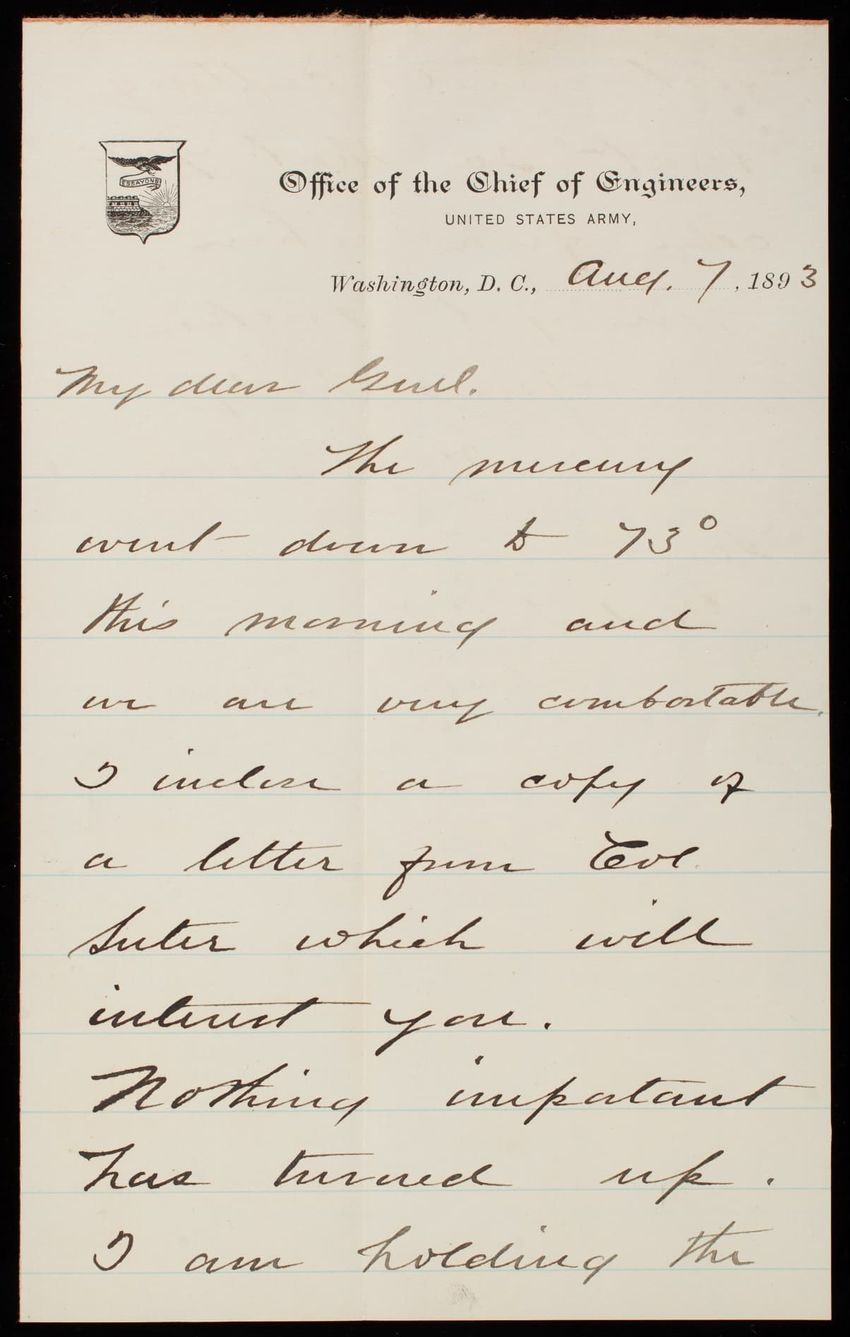 ESSAYONS
Office of the Chief of Engineers,
UNITED STATES ARMY,
Washington, D. C., Aug. 7, 1893
My dear Genl.
The mercury
went down to 73°
this morning and
we are very comfortable.
I inclose a copy of
a letter from Col
Suter which will
interest you.
Nothing important
has turned up.
I am holding the